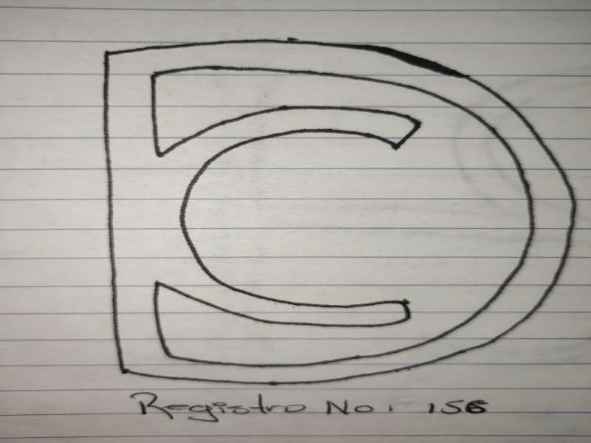 Registro No. 156